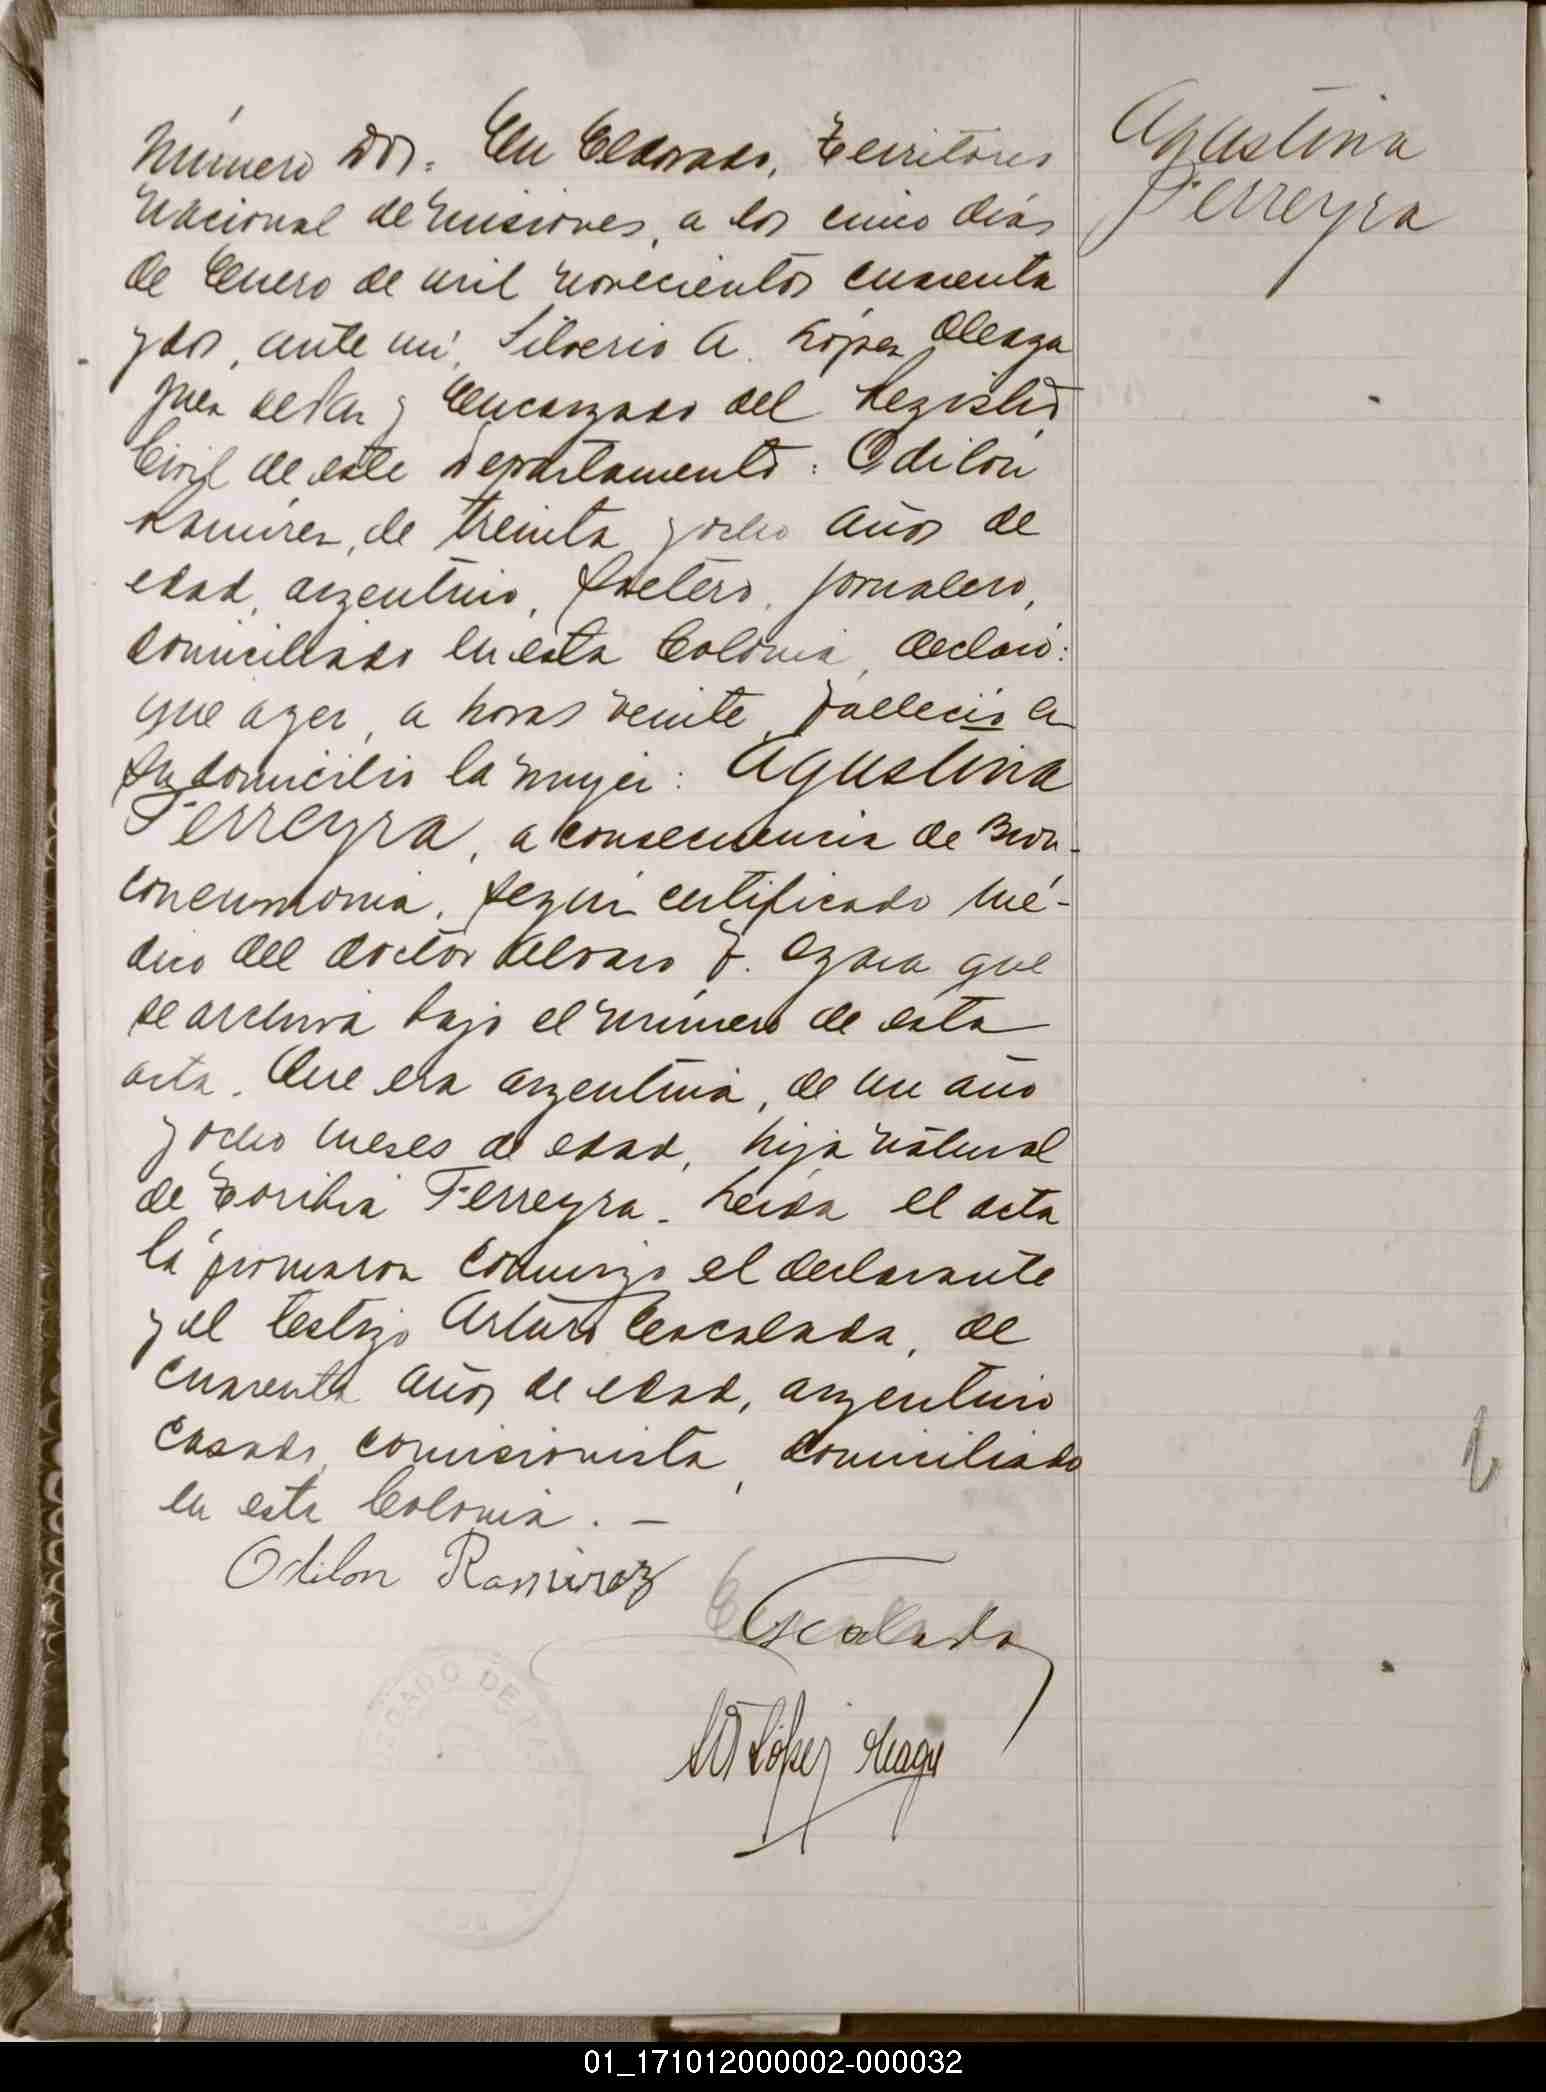 Número Dos. En Eldorado, Territorio
Nacional de Misiones, a los cinco días
de Enero de mil novecientos cuarenta
y dos, ante mí, Silverio A. López Aleaga
Juez de Paz y Encargado del Registro
Civil de este Departamento: Odilón
Ramírez, de treinta y ocho años de
edad, argentino, soltero, jornalero,
domiciliado en esta Colonia, declaró:
que ayer, a horas veinte, falleció en
su domicilio la mujer: Agustina
Ferreyra, a consecuencia de Bron-
coneumonia, según certificado mé-
dico del doctor Alvaro F. que
se archiva bajo el número de esta
acta. Que era argentina, de un año
y ocho meses de edad, hija natural
de Toribia Ferreyra. Leída el acta
la firmaron conmigo el declarante
y el testigo Arturo Escalada, de
cuarenta años de edad, argentino
casado, comisionista, domiciliado
en esta Colonia. –
Agustina
Ferreyra
2
Odilon Ramirez
Escalada
López
JUZGADO DE PAZ
01_171012000002-000032